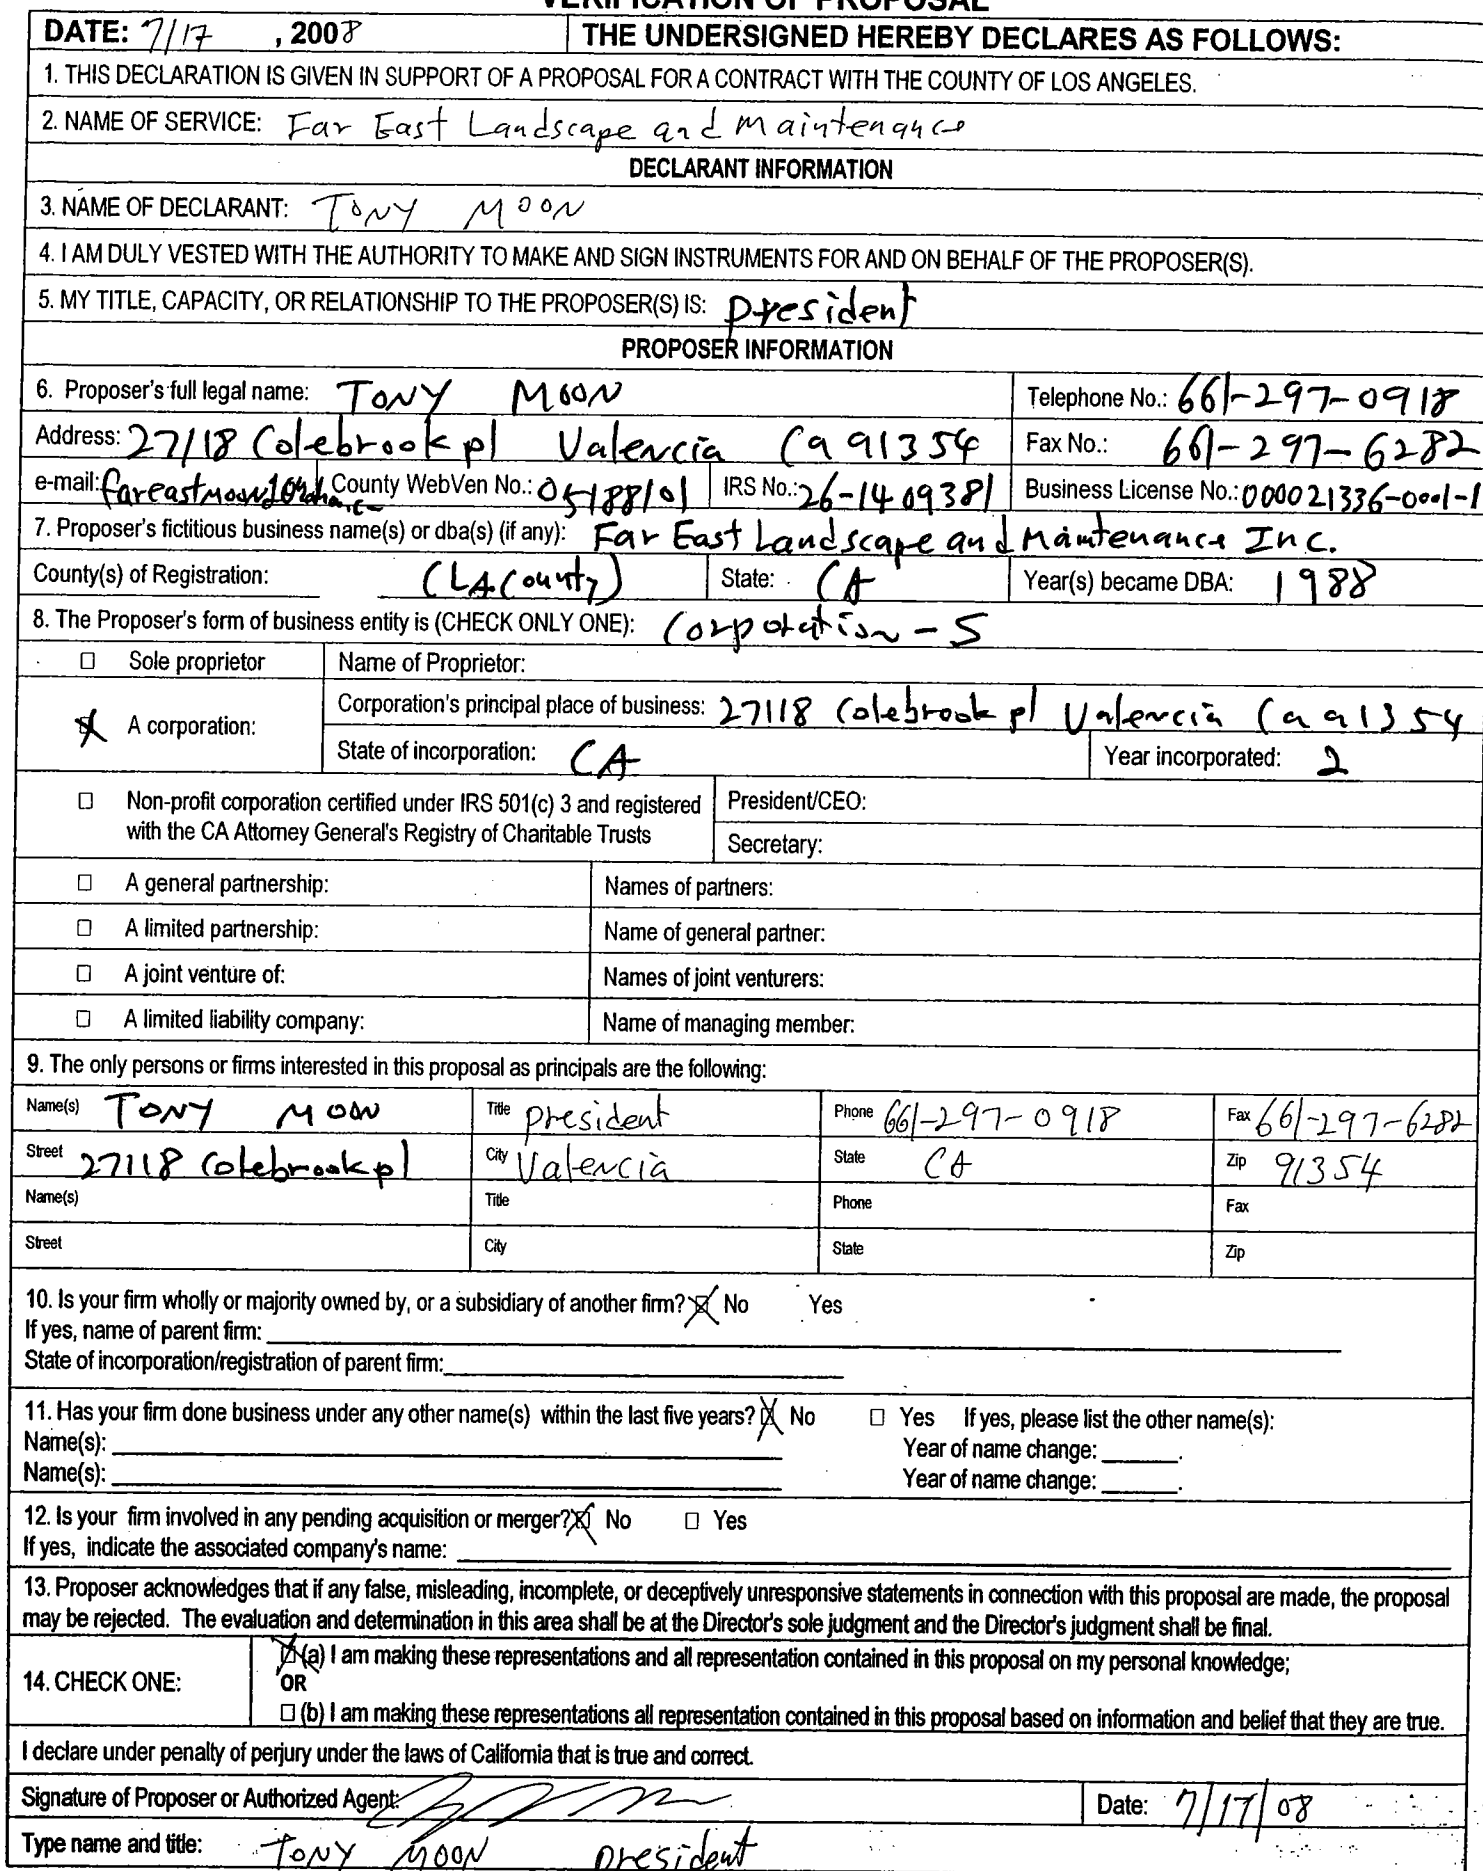 VERIFICATION OF PROPOSAL
DATE: 7/17 , 2008 THE UNDERSIGNED HEREBY DECLARES AS FOLLOWS:
1. THIS DECLARATION IS GIVEN IN SUPPORT OF A PROPOSAL FOR A CONTRACT WITH THE COUNTY OF LOS ANGELES.
2. NAME OF SERVICE: Far East Landscape and Maintenance
DECLARANT INFORMATION
3. NAME OF DECLARANT: TONY MOON
4. I AM DULY VESTED WITH THE AUTHORITY TO MAKE AND SIGN INSTRUMENTS FOR AND ON BEHALF OF THE PROPOSER(S).
5. MY TITLE, CAPACITY, OR RELATIONSHIP TO THE PROPOSER(S) IS: president
PROPOSER INFORMATION
6. Proposer's full legal name: TONY MOON Telephone No.: 661-297-0918
Address: 27118 Colebrook pl Valencia Ca 91354 Fax No.: 661-297-6282
e-mail: County WebVen No.: 05188101 IRS No.: 26-1409381 Business License No.: 000021336-0001-1
7. Proposer's fictitious business name(s) or dba(s) (if any): Far East Landscape and Maintenance Inc.
County(s) of Registration: (LA County) State: CA Year(s) became DBA: 1988
8. The Proposer's form of business entity is (CHECK ONLY ONE): Corporation - S
Sole proprietor Name of Proprietor:
A corporation: Corporation's principal place of business: 27118 Colebrook pl Valencia Ca 91354
State of incorporation: CA Year incorporated: 2
Non-profit corporation certified under IRS 501(c) 3 and registered President/CEO:
with the CA Attorney General's Registry of Charitable Trusts Secretary:
A general partnership: Names of partners:
A limited partnership: Name of general partner:
A joint venture of: Names of joint venturers:
A limited liability company: Name of managing member:
9. The only persons or firms interested in this proposal as principals are the following:
Name(s) TONY MOON Title president Phone 661-297-0918 Fax 661-297-6282
Street 27118 Colebrook pl City Valencia State CA Zip 91354
Name(s) Title Phone Fax
Street City State Zip
10. Is your firm wholly or majority owned by, or a subsidiary of another firm? No Yes
If yes, name of parent firm:
State of incorporation/registration of parent firm:
11. Has your firm done business under any other name(s) within the last five years? No Yes If yes, please list the other name(s):
Name(s): Year of name change:
Name(s): Year of name change:
12. Is your firm involved in any pending acquisition or merger? No Yes
If yes, indicate the associated company's name:
13. Proposer acknowledges that if any false, misleading, incomplete, or deceptively unresponsive statements in connection with this proposal are made, the proposal
may be rejected. The evaluation and determination in this area shall be at the Director's sole judgment and the Director's judgment shall be final.
14. CHECK ONE: (a) I am making these representations and all representation contained in this proposal on my personal knowledge;
OR
(b) I am making these representations all representation contained in this proposal based on information and belief that they are true.
I declare under penalty of perjury under the laws of California that is true and correct.
Signature of Proposer or Authorized Agent: Date: 7/17/08
Type name and title: TONY MOON president